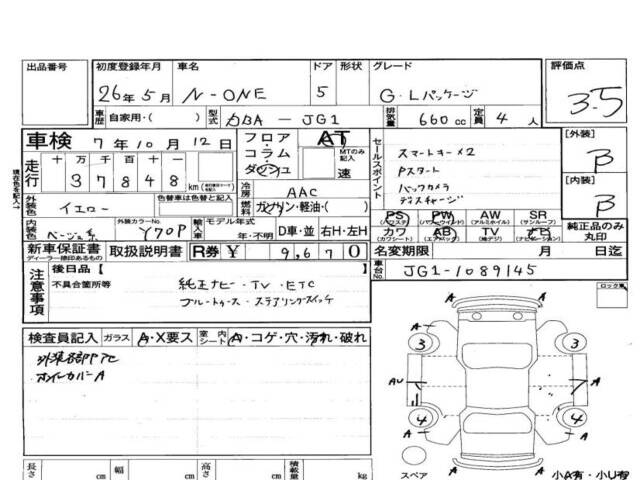 出品番号 初度登録年月 車名 ドア 形状 グレード 評価点
26年5月 N-ONE 5 G・Lパッケージ 3.5
車歴 自家用・( ) 型式 DBA-JG1 排気量 660cc 定員 4人
車検 7年10月12日 フロア・コラム・ダッシュ AT MTのみ記入 速
セールスポイント
スマートキー×2
Pスタート
バックカメラ
ディスチャージ
[外装] B
[内装] B
現在色を記入↓
走行 十 万 千 百 十 一
3 7 8 4 8 km
冷房 AAC
外装色 イエロー 色替車は色替と記入 燃料 ガソリン・軽油・( )
PS PW AW SR
(パワステ) (パワーウインド) (アルミホイル) (サンルーフ)
カワ AB TV ナビ 純正品のみ丸印
(カワシート) (エアバッグ) (ナビゲーション)
内装色 ベージュ系 外装カラーNo. Y70P 輸入車 モデル年式 年・不明 D車・並 右H・左H
新車保証書 取扱説明書 R券 ¥ 9,670 名変期限 月 日迄
ディーラー捺印あるもの
車台No. JG1-1089145
注意事項 後日品[ ]
不具合箇所等 純正ナビ・TV・ETC
ブルートゥース・ステアリングスイッチ
ロック車
検査員記入 ガラス A・X要ス 室内シート A・コゲ・穴・汚れ・破れ
外装各部P.アセ
ホイールカバーA
A A
3 3
A A
AU A
4 4
A A
A
スペア 小A有・小U有
長さ cm 幅 cm 高さ cm 積載量 kg